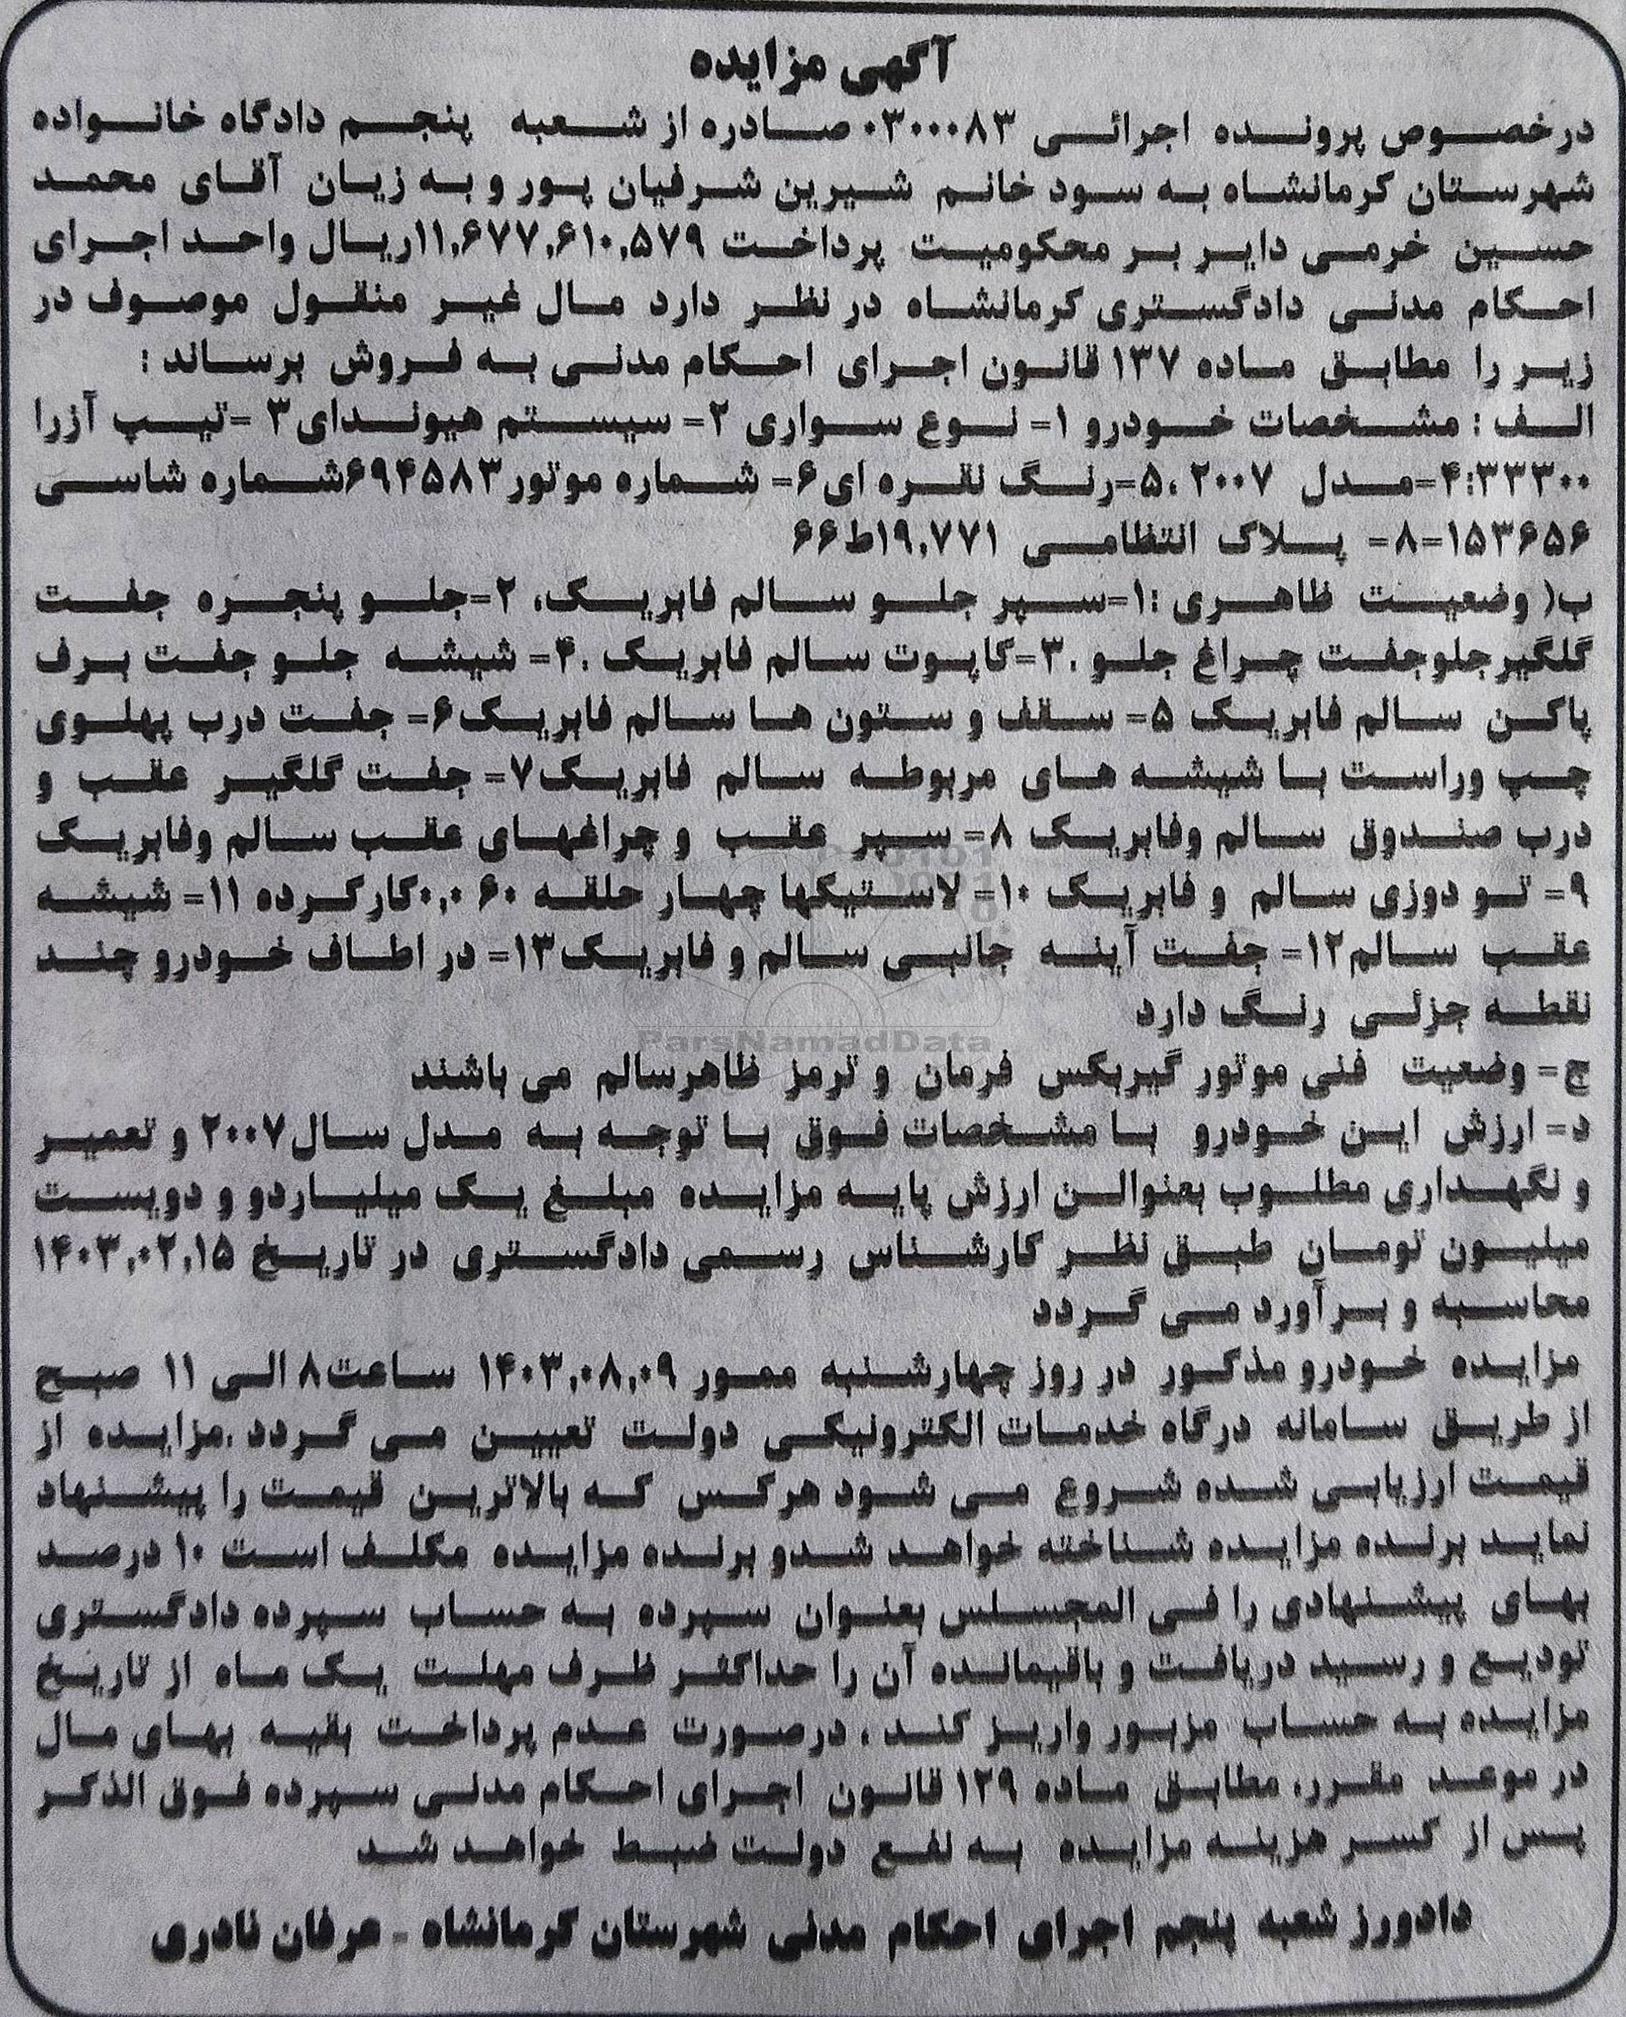 آگهی مزایده
درخصوص پرونده اجرائی ۰۳۰۰۰۸۳ صادره از شعبه پنجم دادگاه خانواده
شهرستان کرمانشاه به سود خانم شیرین شرفیان پور و به زیان آقای محمد
حسین خرمی دایر بر محکومیت پرداخت ۱۱,۶۷۷,۶۱۰,۵۷۹ریال واحد اجرای
احکام مدنی دادگستری کرمانشاه در نظر دارد مال غیر منقول موصوف در
زیر را مطابق ماده ۱۳۷ قانون اجرای احکام مدنی به فروش برساند :
الف : مشخصات خودرو ۱= نوع سواری ۲= سیستم هیوندای۳ =تیپ آزرا
۴:۳۳۳۰۰=مدل ۲۰۰۷ ،۵=رنگ نقره ای۶= شماره موتور۶۹۴۵۸۳شماره شاسی
۱۵۳۶۵۶=۸= پلاک انتظامی ۱۹,۷۷۱ط۶۶
ب( وضعیت ظاهری :۱=سپر جلو سالم فابریک، ۲=جلو پنجره جفت
گلگیرجلوجفت چراغ جلو .۳=کاپوت سالم فابریک .۴= شیشه جلو جفت برف
پاکن سالم فابریک ۵= سقف و ستون ها سالم فابریک۶= جفت درب پهلوی
چپ وراست با شیشه های مربوطه سالم فابریک۷= جفت گلگیر عقب و
درب صندوق سالم وفابریک ۸= سپر عقب و چراغهای عقب سالم وفابریک
۹= تو دوزی سالم و فابریک ۱۰= لاستیکها چهار حلقه ۶۰ ۰,۰کارکرده ۱۱= شیشه
عقب سالم۱۲= جفت آینه جانبی سالم و فابریک۱۳= در اطاف خودرو چند
نقطه جزئی رنگ دارد
ParsNamadData
ج= وضعیت فنی موتور گیربکس فرمان و ترمز ظاهرسالم می باشند
د= ارزش این خودرو با مشخصات فوق با توجه به مدل سال۲۰۰۷ و تعمیر
و نگهداری مطلوب بعنوالن ارزش پایه مزایده مبلغ یک میلیاردو و دویست
میلیون تومان طبق نظر کارشناس رسمی دادگستری در تاریخ ۱۴۰۳,۰۲,۱۵
محاسبه و برآورد می گردد
مزایده خودرو مذکور در روز چهارشنبه ممور ۱۴۰۳,۰۸,۰۹ ساعت۸ الی ۱۱ صبح
از طریق سامانه درگاه خدمات الکترونیکی دولت تعیین می گردد .مزایده از
قیمت ارزیابی شده شروع می شود هرکس که بالاترین قیمت را پیشنهاد
نماید برنده مزایده شناخته خواهد شدو برنده مزایده مکلف است ۱۰ درصد
بهای پیشنهادی را فی المجسلس بعنوان سپرده به حساب سپرده دادگستری
تودیع و رسید دریافت و باقیمانده آن را حداکثر ظرف مهلت یک ماه از تاریخ
مزایده به حساب مزبور واریز کند ، درصورت عدم پرداخت بقیه بهای مال
در موعد مقرر، مطابق ماده ۱۲۹ قانون اجرای احکام مدنی سپرده فوق الذکر
پس از کسر هزینه مزایده به نفع دولت ضبط خواهد شد
دادورز شعبه پنجم اجرای احکام مدنی شهرستان کرمانشاه - عرفان نادری